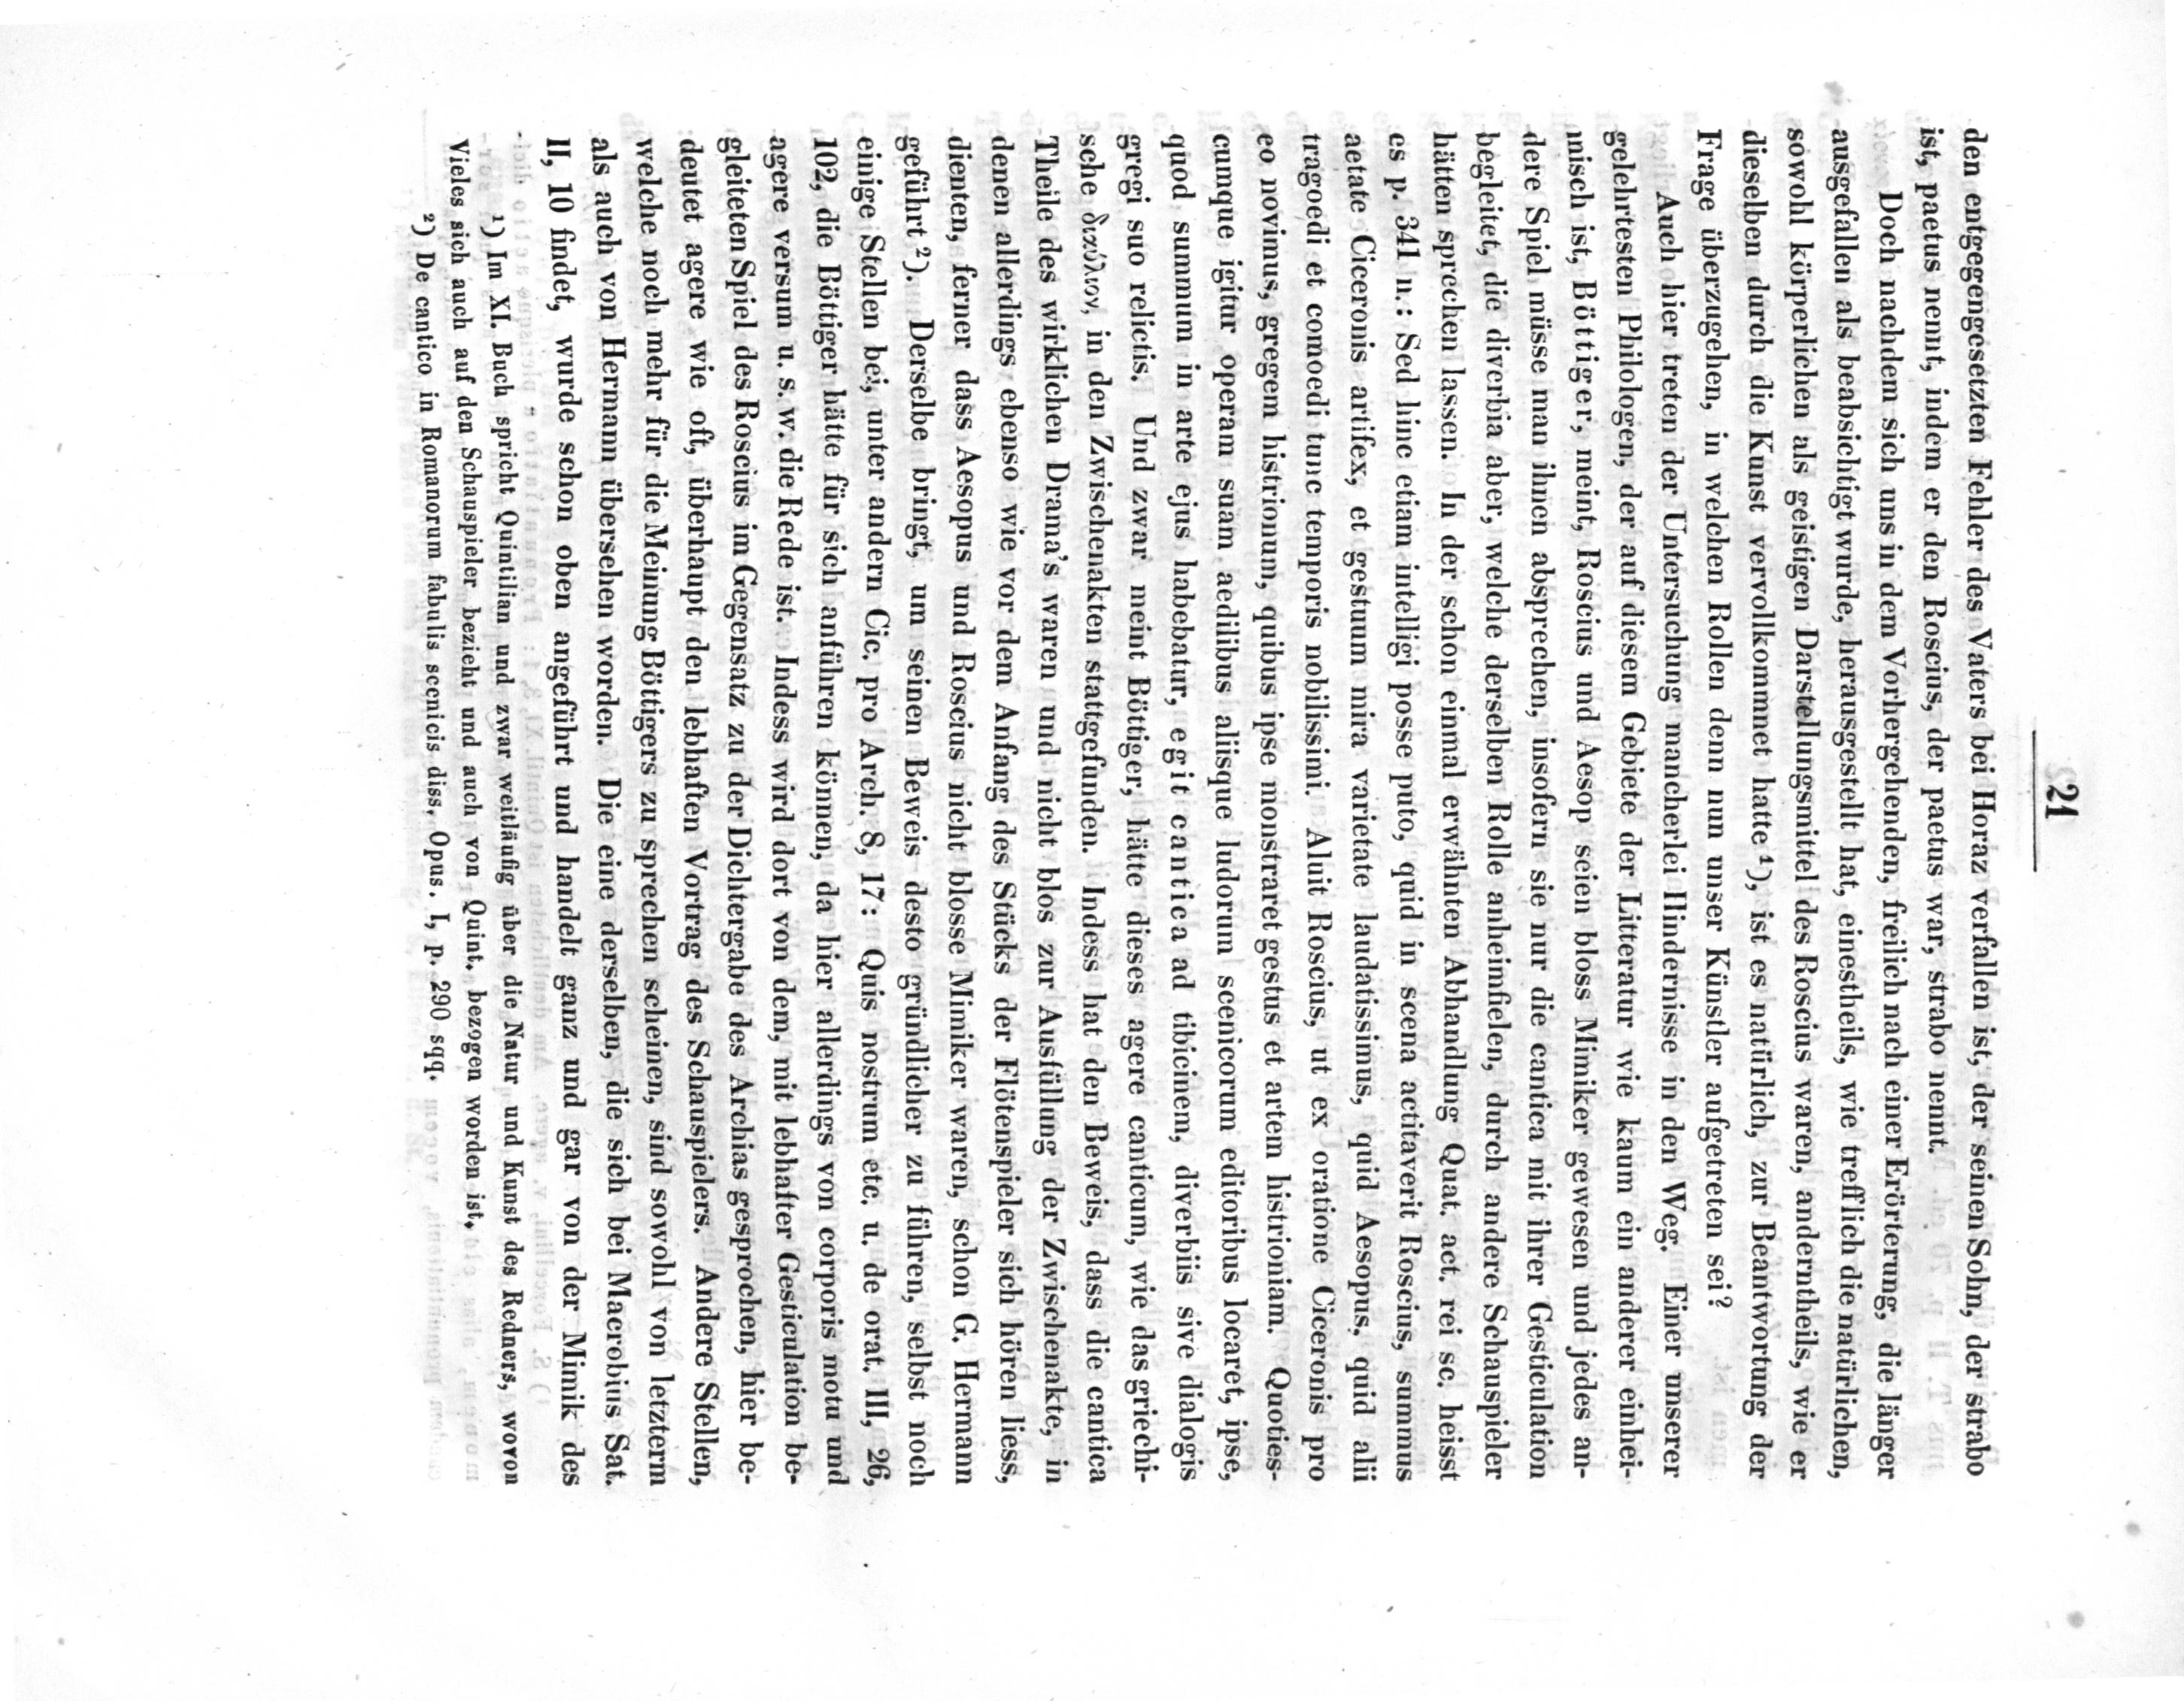 21
den entgegengesetzten Fehler des Vaters bei Horaz verfallen ist, der seinen Sohn, der strabo
ist, paetus nennt, indem er den Roscius, der paetus war, strabo nennt.
Doch nachdem sich uns in dem Vorhergehenden, freilich nach einer Erörterung, die länger
ausgefallen als beabsichtigt wurde, herausgestellt hat, einestheils, wie trefflich die natürlichen,
sowohl körperlichen als geistigen Darstellungsmittel des Roscius waren, anderntheils, wie er
dieselben durch die Kunst vervollkommnet hatte ¹), ist es natürlich, zur Beantwortung der
Frage überzugehen, in welchen Rollen denn nun unser Künstler aufgetreten sei?
Auch hier treten der Untersuchung mancherlei Hindernisse in den Weg. Einer unserer
gelehrtesten Philologen, der auf diesem Gebiete der Litteratur wie kaum ein anderer einhei-
misch ist, Böttiger, meint, Roscius und Aesop seien bloss Mimiker gewesen und jedes an-
dere Spiel müsse man ihnen absprechen, insofern sie nur die cantica mit ihrer Gesticulation
begleitet, die diverbia aber, welche derselben Rolle anheimfielen, durch andere Schauspieler
hätten sprechen lassen. In der schon einmal erwähnten Abhandlung Quat. act. rei sc. heisst
es p. 341 n.: Sed hinc etiam intelligi posse puto, quid in scena actitaverit Roscius, summus
aetate Ciceronis artifex, et gestuum mira varietate laudatissimus, quid Aesopus, quid alii
tragoedi et comoedi tunc temporis nobilissimi. Aluit Roscius, ut ex oratione Ciceronis pro
eo novimus, gregem histrionum, quibus ipse monstraret gestus et artem histrioniam. Quoties-
cumque igitur operam suam aedilibus aliisque ludorum scenicorum editoribus locaret, ipse,
quod summum in arte ejus habebatur, egit cantica ad tibicinem, diverbiis sive dialogis
gregi suo relictis. Und zwar meint Böttiger, hätte dieses agere canticum, wie das griechi-
sche διαύλιον, in den Zwischenakten stattgefunden. Indess hat den Beweis, dass die cantica
Theile des wirklichen Drama's waren und nicht blos zur Ausfüllung der Zwischenakte, in
denen allerdings ebenso wie vor dem Anfang des Stücks der Flötenspieler sich hören liess,
dienten, ferner dass Aesopus und Roscius nicht blosse Mimiker waren, schon G. Hermann
geführt ²). Derselbe bringt, um seinen Beweis desto gründlicher zu führen, selbst noch
einige Stellen bei, unter andern Cic. pro Arch. 8, 17: Quis nostrum etc. u. de orat. III, 26,
102, die Böttiger hätte für sich anführen können, da hier allerdings von corporis motu und
agere versum u. s. w. die Rede ist. Indess wird dort von dem, mit lebhafter Gesticulation be-
gleiteten Spiel des Roscius im Gegensatz zu der Dichtergabe des Archias gesprochen, hier be-
deutet agere wie oft, überhaupt den lebhaften Vortrag des Schauspielers. Andere Stellen,
welche noch mehr für die Meinung Böttigers zu sprechen scheinen, sind sowohl von letzterm
als auch von Hermann übersehen worden. Die eine derselben, die sich bei Macrobius Sat.
II, 10 findet, wurde schon oben angeführt und handelt ganz und gar von der Mimik des
¹) Im XI. Buch spricht Quintilian und zwar weitläufig über die Natur und Kunst des Redners, wovon
Vieles sich auch auf den Schauspieler bezieht und auch von Quint. bezogen worden ist.
²) De cantico in Romanorum fabulis scenicis diss. Opus. I, p. 290 sqq.